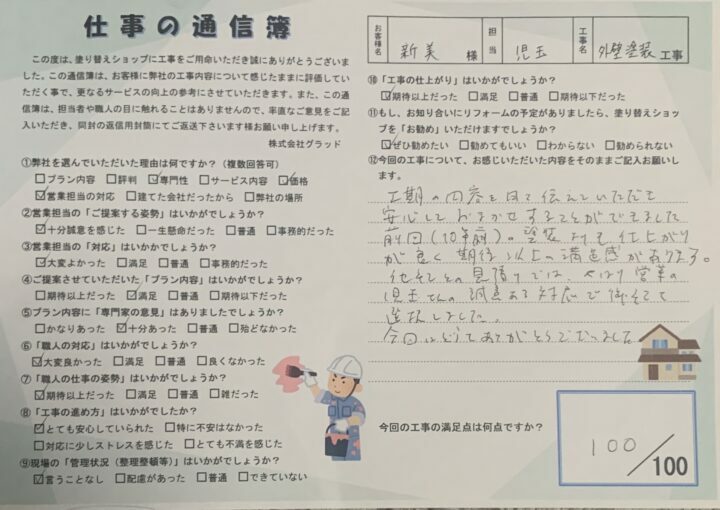 仕事の通信簿
お客様名 新美 様 担当 児玉 工事名 外壁塗装工事
この度は、塗り替えショップに工事をご用命いただき誠にありがとうございま
した。この通信簿は、お客様に弊社の工事内容について感じたままに評価してい
ただく事で、更なるサービスの向上の参考にさせていただきます。また、この通
信簿は、担当者や職人の目に触れることはありませんので、率直なご意見をご記
入いただき、同封の返信用封筒にてご返送下さいます様お願い申し上げます。
株式会社グラッド
①弊社を選んでいただいた理由は何ですか？（複数回答可）
□プラン内容 □評判 ☑専門性 □サービス内容 ☑価格
☑営業担当の対応 □建てた会社だったから □弊社の場所
②営業担当の「ご提案する姿勢」はいかがでしょうか？
☑十分誠意を感じた □一生懸命だった □普通 □事務的だった
③営業担当の「対応」はいかがでしょうか？
☑大変よかった □満足 □普通 □事務的だった
④ご提案させていただいた「プラン内容」はいかがでしょうか？
□期待以上だった ☑満足 □普通 □期待以下だった
⑤プラン内容に「専門家の意見」はありましたでしょうか？
□かなりあった ☑十分あった □普通 □殆どなかった
⑥「職人の対応」はいかがでしょうか？
☑大変良かった □満足 □普通 □良くなかった
⑦「職人の仕事の姿勢」はいかがでしょうか？
☑期待以上だった □満足 □普通 □雑だった
⑧「工事の進め方」はいかがでしたか？
☑とても安心していられた □特に不安はなかった
□対応に少しストレスを感じた □とても不満を感じた
⑨現場の「管理状況（整理整頓等）」はいかがでしょうか？
☑言うことなし □配慮があった □普通 □できていない
⑩「工事の仕上がり」はいかがでしょうか？
☑期待以上だった □満足 □普通 □期待以下だった
⑪もし、お知り合いにリフォームの予定がありましたら、塗り替えショッ
プを「お勧め」いただけますでしょうか？
☑ぜひ勧めたい □勧めてもいい □わからない □勧められない
⑫今回の工事について、お感じいただいた内容をそのままご記入お願いし
ます。
工期の内容を 伝えていただき
安心しておまかせすることができました
前回(10年前)の塗装よりも仕上がり
が良く期待以上の満足感があります。
他社との見積りでは、やはり営業の
児玉さんの誠意ある対応で御社を
選択しました。
今回はどうもありがとうございました
今回の工事の満足点は何点ですか？
100/100